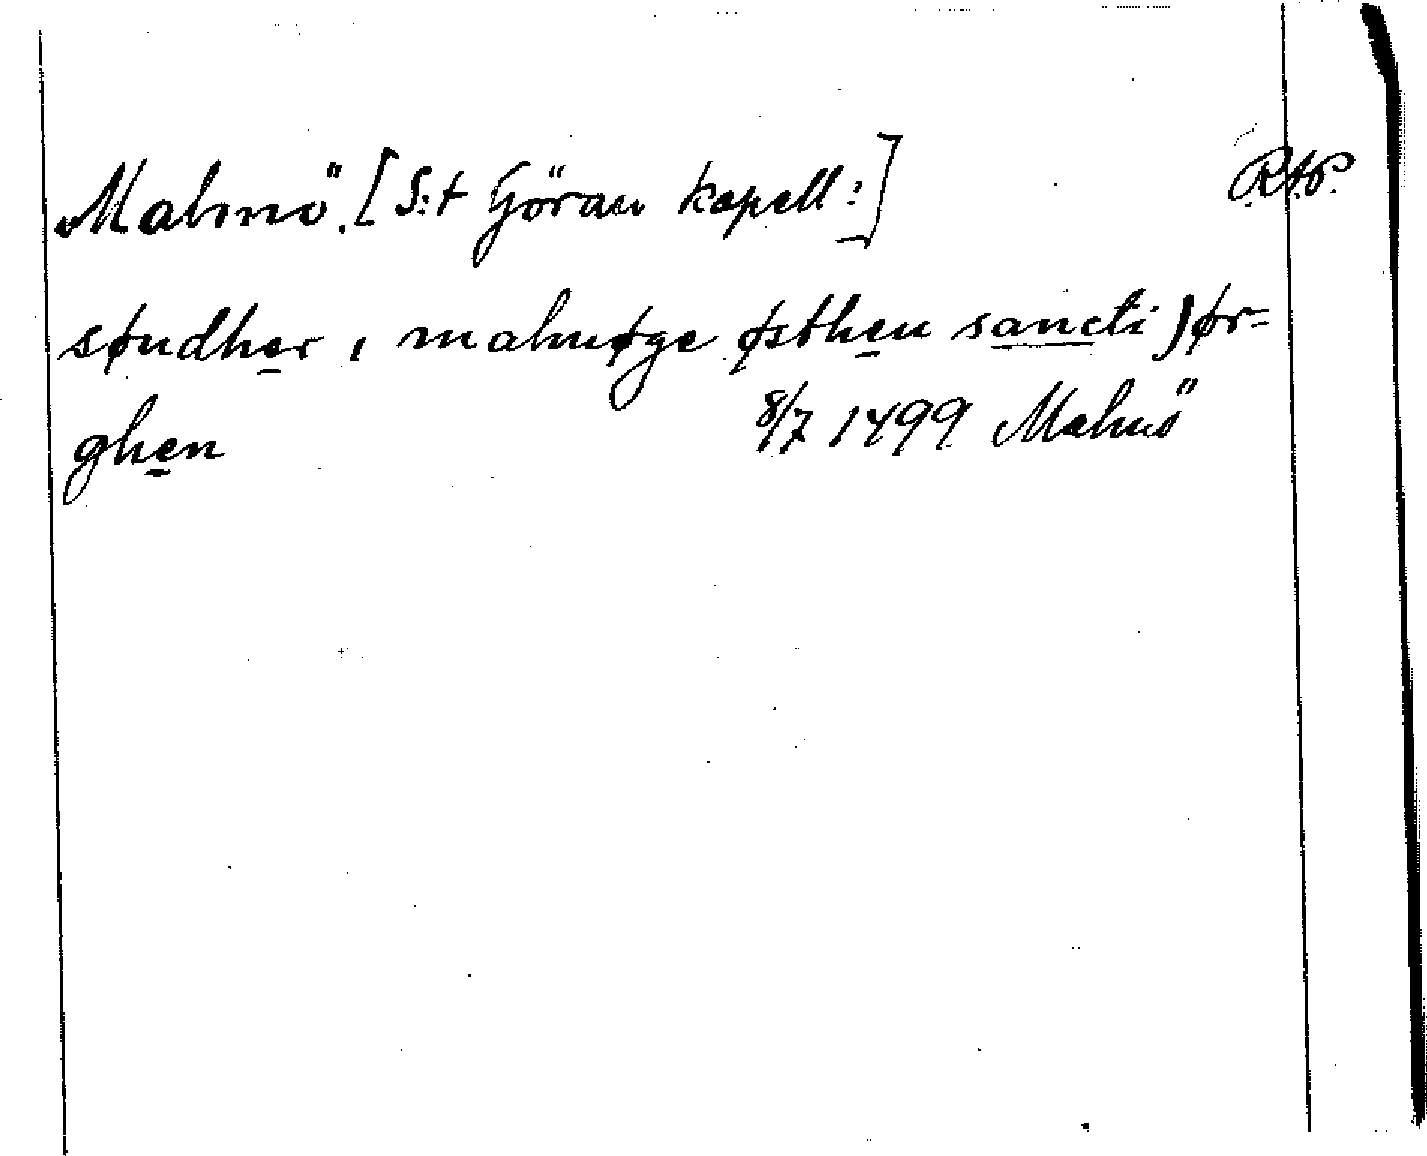 Malmö. [S:t Göran kapell:] RAP.
søndher i malmøge østhen sancti jør-
ghen 8/7 1499 Malmö